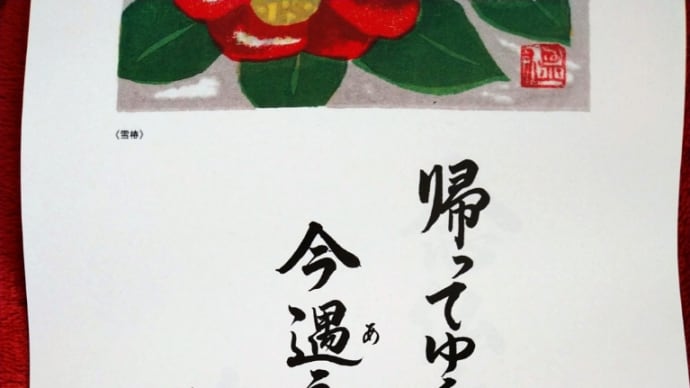 〈雪椿〉
帰ってゆ
あ
今遇